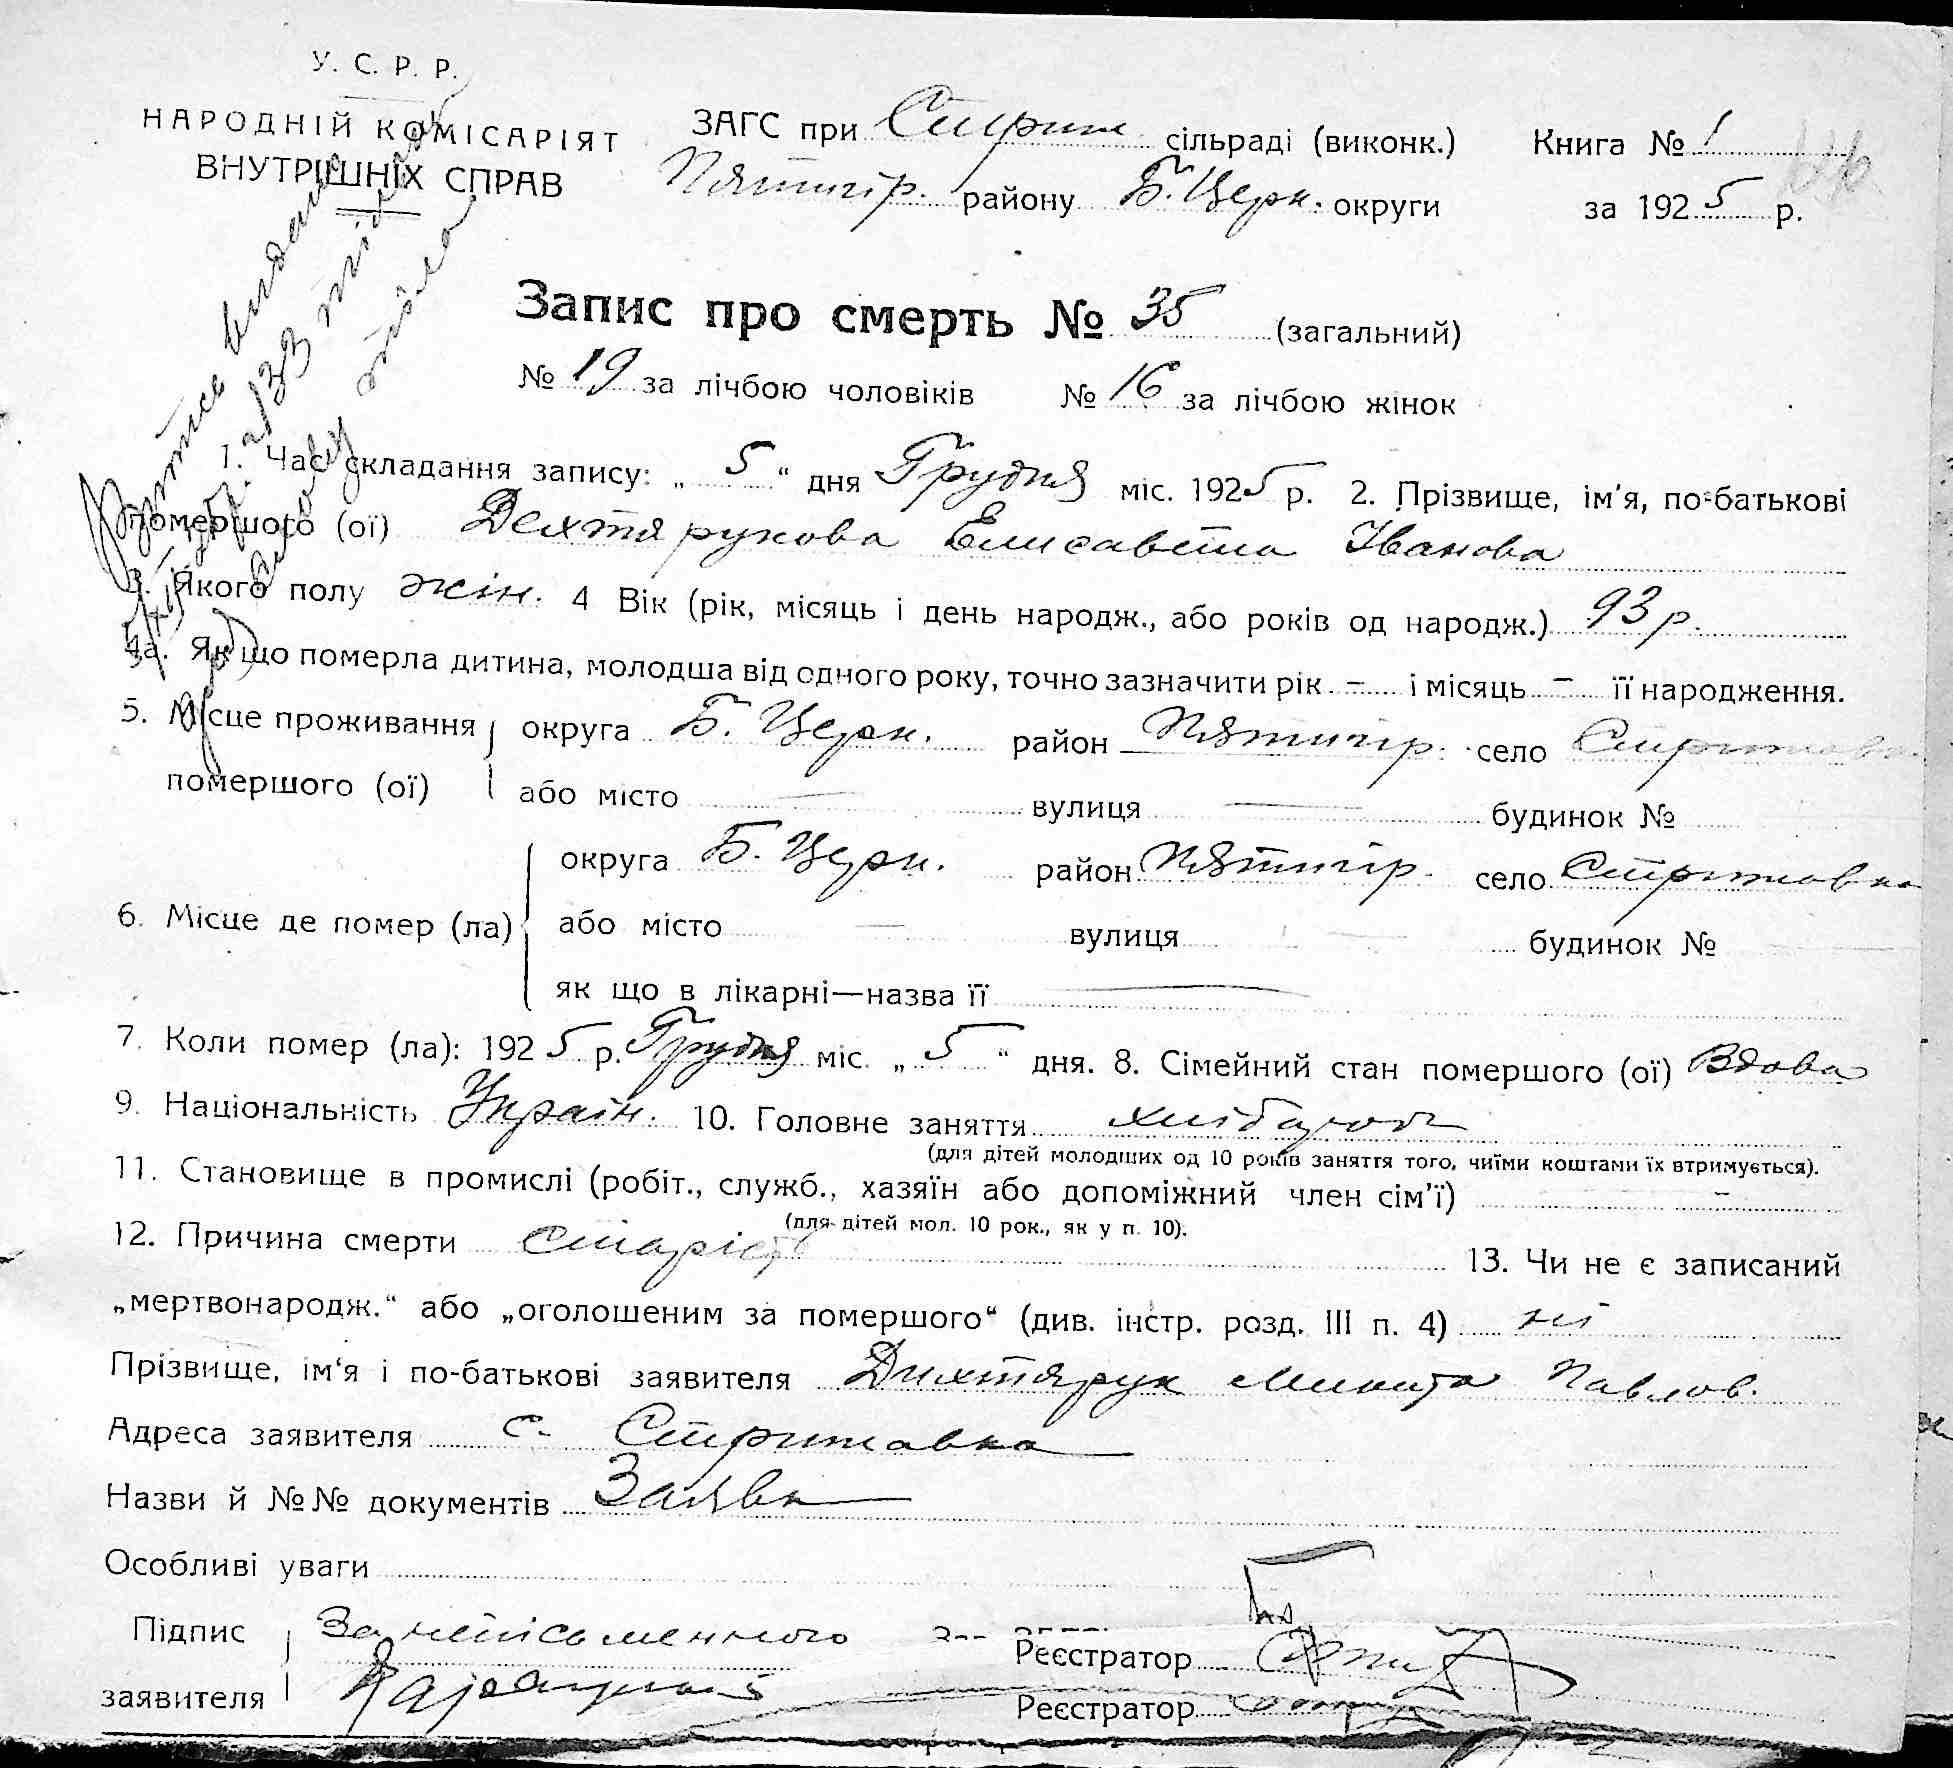 У. С. Р. Р.
НАРОДНІЙ КОМІСАРІЯТ
ВНУТРІШНІХ СПРАВ
ЗАГС при Стриж. сільраді (виконк.) Книга № 1
Пятигір. району Б. Церк. округи за 1925 р.
Запис про смерть № 35 (загальний)
№ 19 за лічбою чоловіків № 16 за лічбою жінок
1. Час складання запису: „ 5 “ дня Грудня міс. 1925 р. 2. Прізвище, ім'я, по-батькові
помершого (ої) Дехтярукова Елисавета Іванова
3. Якого полу жін. 4 Вік (рік, місяць і день народж., або років од народж.) 93 р.
4а. Як що померла дитина, молодша від одного року, точно зазначити рік – і місяць – її народження.
5. Місце проживання округа Б. Церк. район Пятигір. село Стрижавка
помершого (ої) або місто — вулиця — будинок №
округа Б. Церк. район Пятигір. село Стрижавка
6. Місце де помер (ла) або місто — вулиця — будинок №
як що в лікарні—назва її —
7. Коли помер (ла): 1925 р. Грудня міс. „ 5 “ дня. 8. Сімейний стан помершого (ої) Вдова
9. Національність Україн. 10. Головне заняття хлібороб
(для дітей молодших од 10 років заняття того, чиїми коштами їх втримується).
11. Становище в промислі (робіт., служб., хазяїн або допоміжний член сім'ї) –
(для дітей мол. 10 рок., як у п. 10).
12. Причина смерти старість 13. Чи не є записаний
„мертвонародж.“ або „оголошеним за помершого“ (див. інстр. розд. III п. 4) ні
Прізвище, ім'я і по-батькові заявителя Дихтярук Микита Павлов.
Адреса заявителя с. Стрижавка
Назви й №№ документів Заява
Особливі уваги
Підпис За неписьменного
заявителя
Реєстратор
Реєстратор